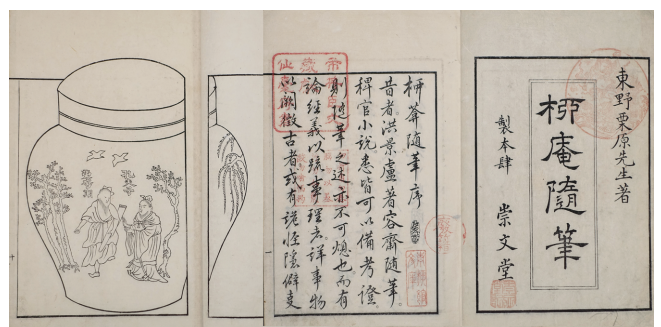 東野栗原先生著
栁庵隨筆
製本肆 崇文堂
栁菴隨筆序
昔者洪景盧著容齋隨筆
稗官小説悉皆可以備考證
則隨筆之述亦不可熄也而有
論經義以疏事理 詳事物
以 徵古者或有詭怪隱僻支